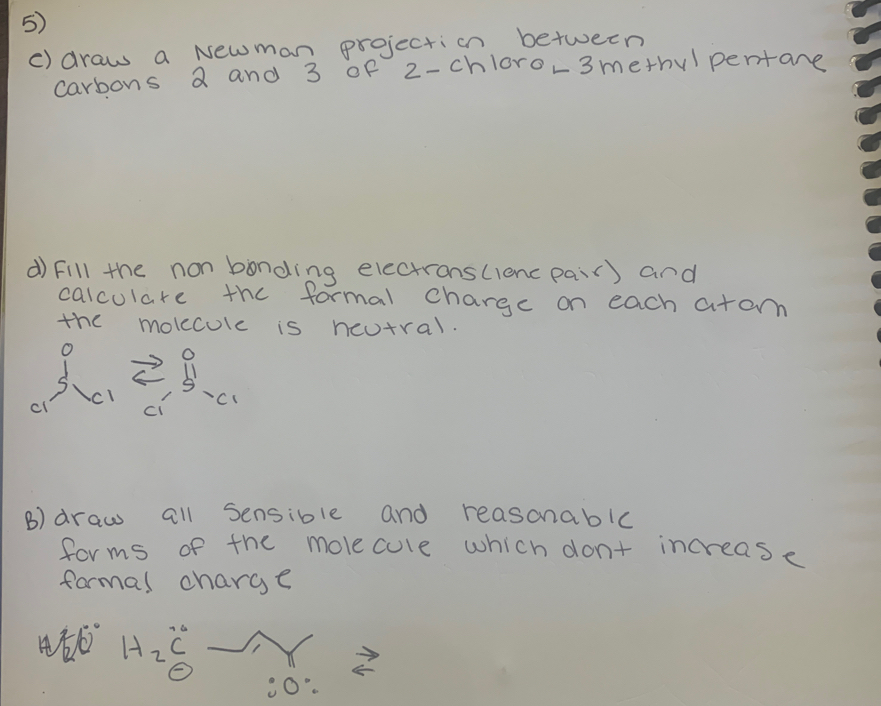 5)
c) draw a Newman projection between
carbons 2 and 3 of 2-chloro-3methylpentane
d) Fill the non bonding electrons (lone pair) and
calculate the formal charge on each atom
the molecule is neutral.
O ⇌ O
S S
Cl Cl Cl Cl
B) draw all sensible and reasonable
forms of the molecule which dont increase
formal charge
H2C ⇌
⊖
:O: